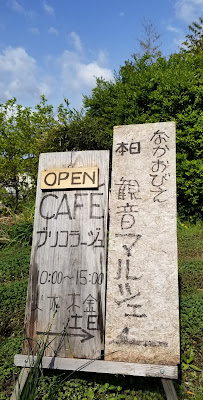 OPEN
CAFE
ブリコラージュ
10:00〜15:00
水木金
土日
→
ながおびん
柏
観音マルシェ
←